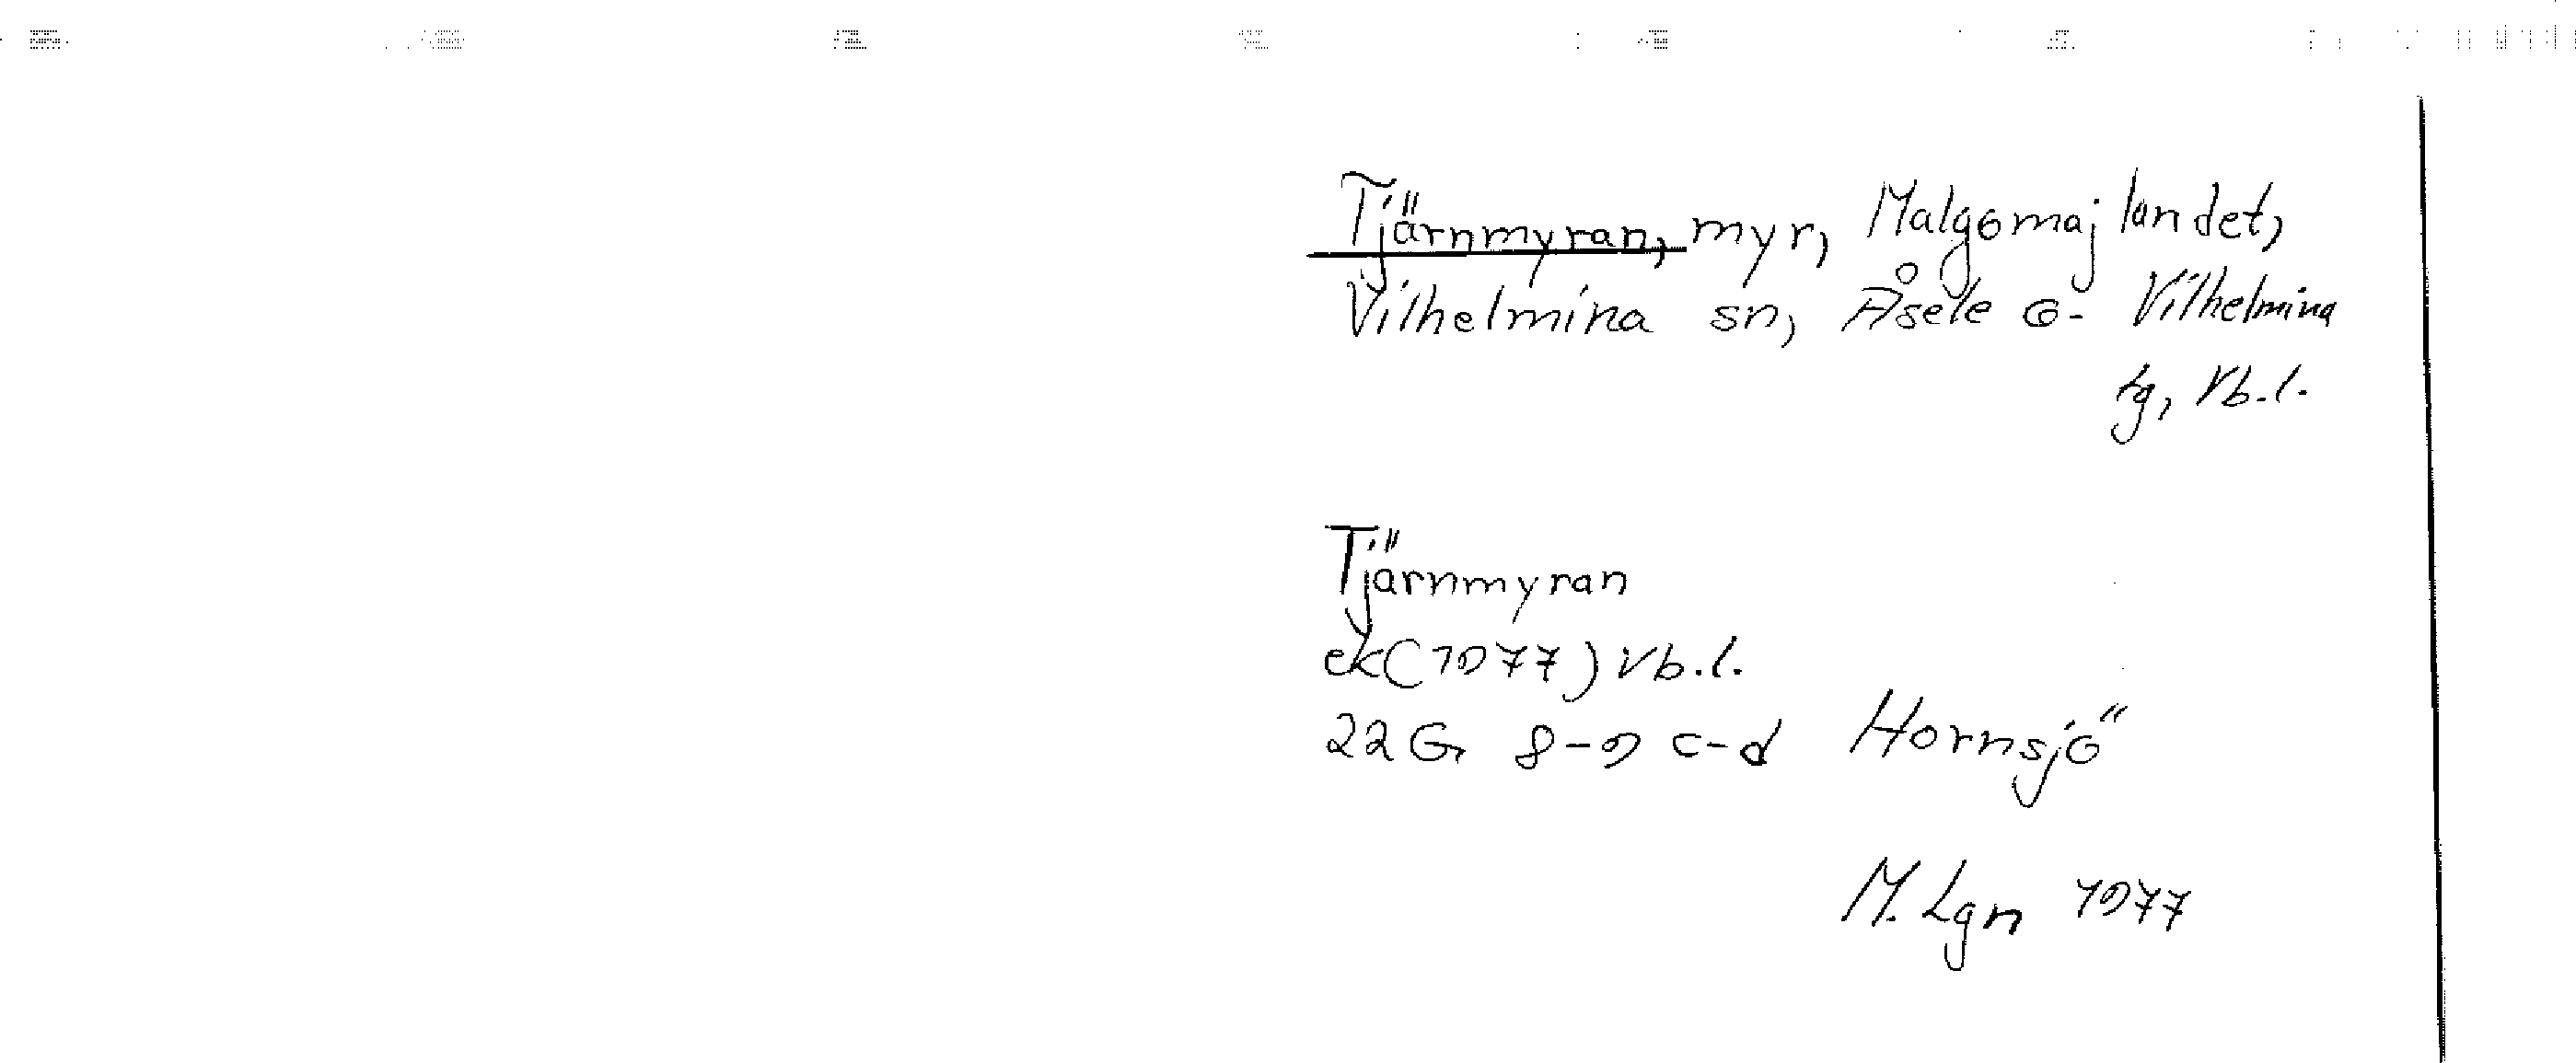 Tjärnmyran, myr, Malgomajlandet,
Vilhelmina sn, Åsele o. Vilhelmina
tg, Vb.l.
Tjärnmyran
ek(1977) Vb.l.
22G 8-9 c-d Hornsjö
M. Lgn 1977